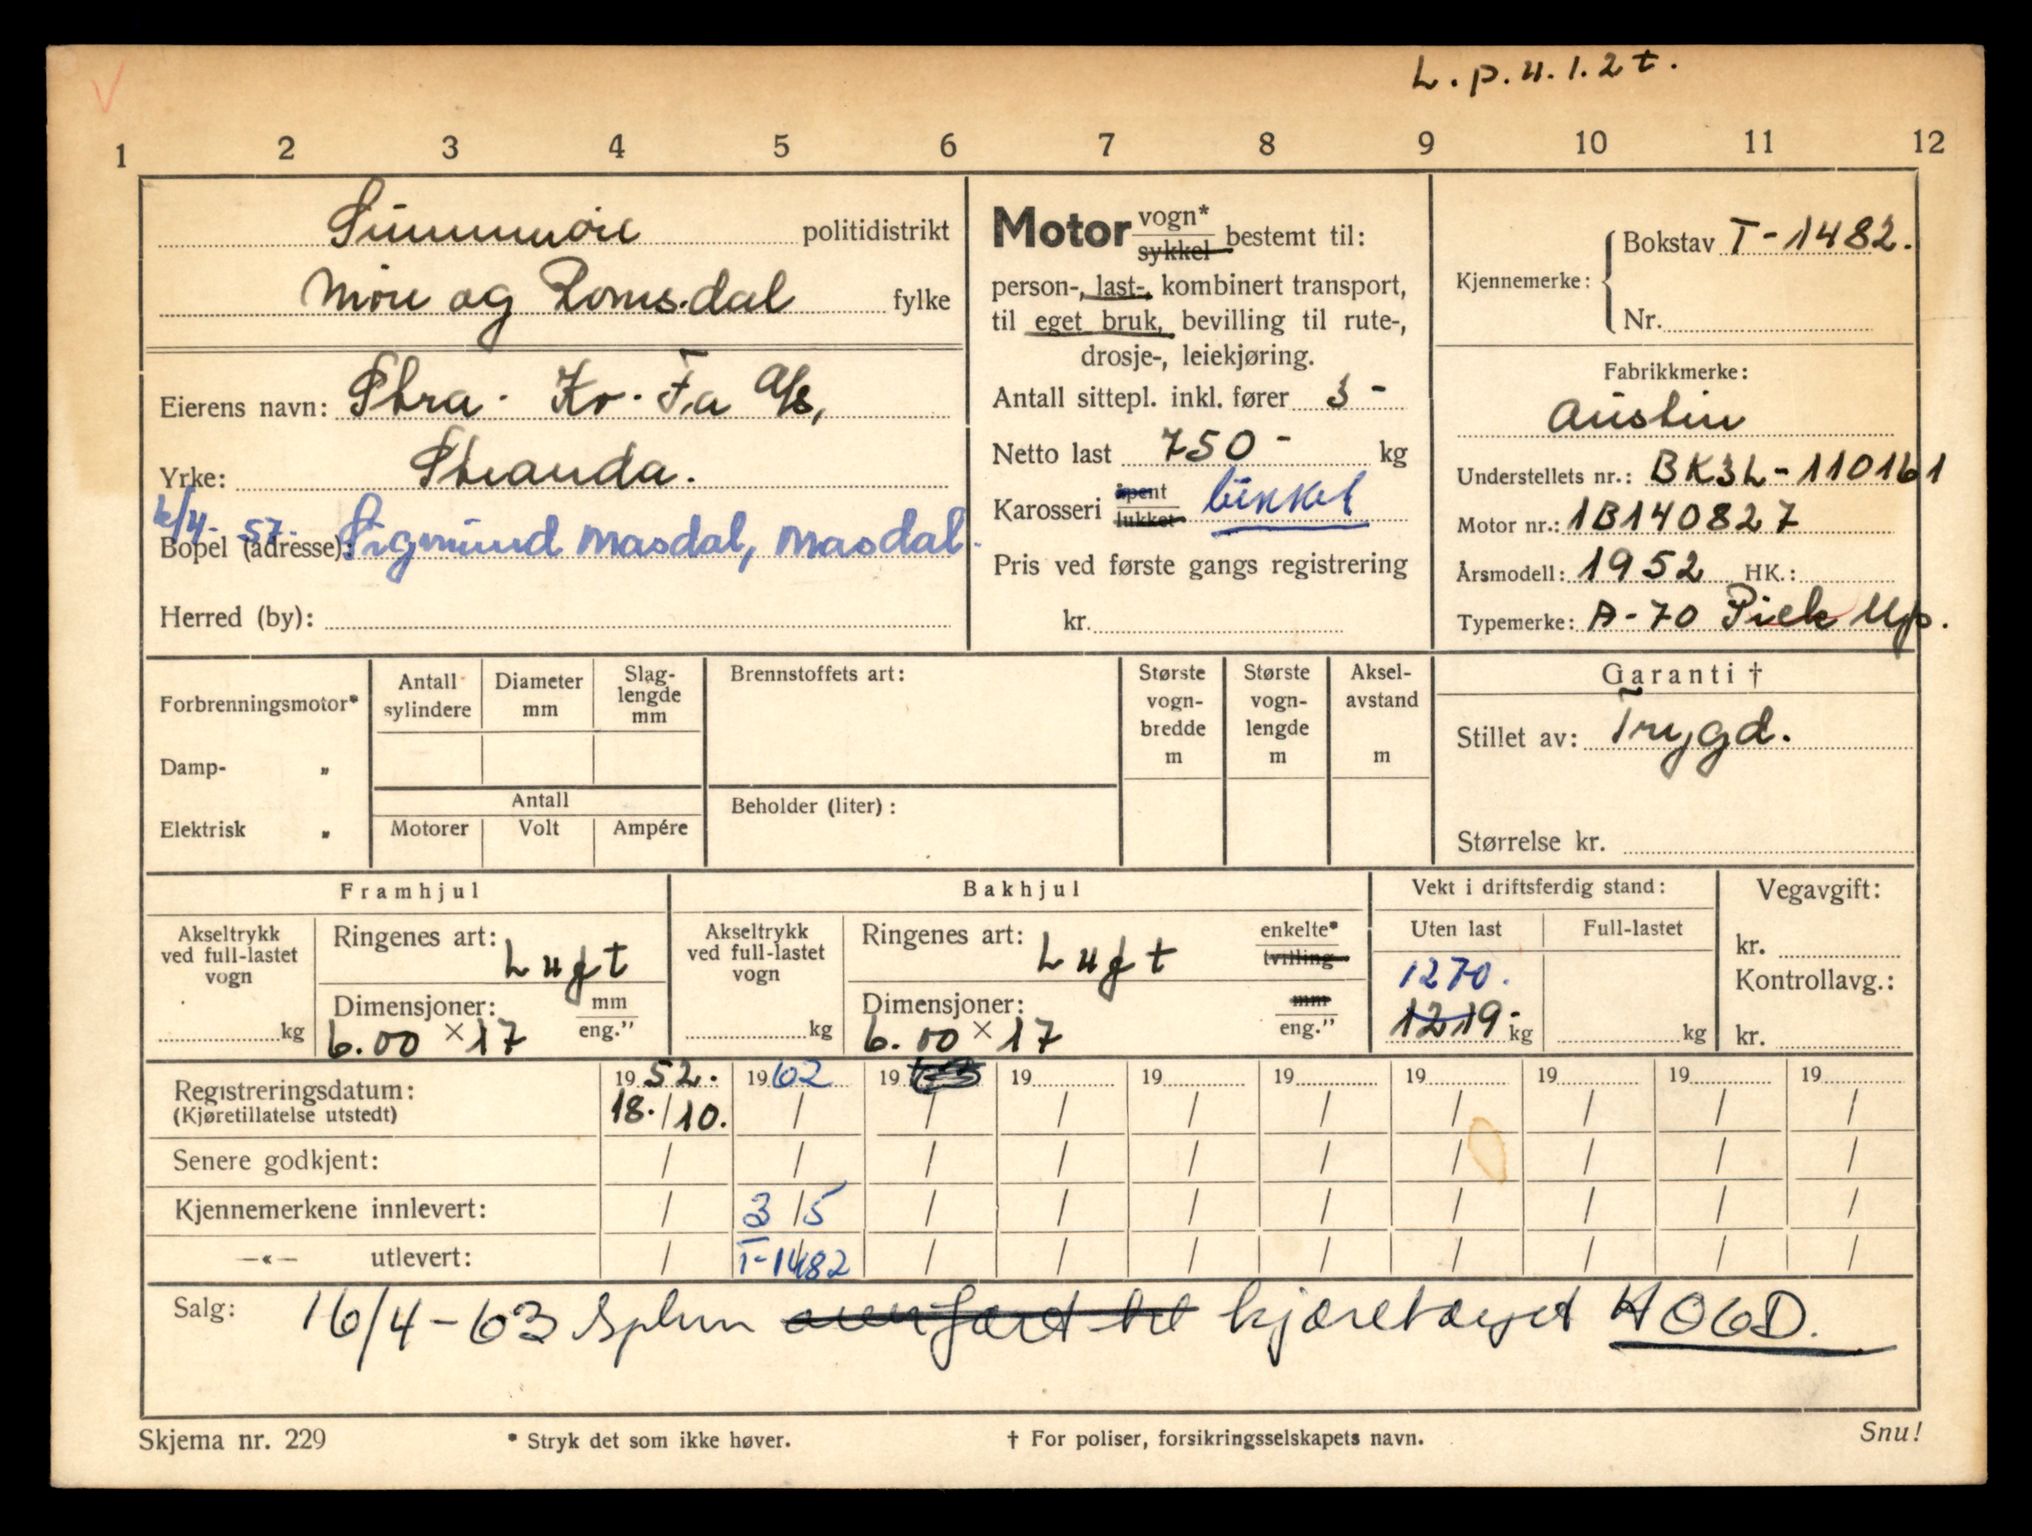 L.p.u.1.2t.
1 2 3 4 5 6 7 8 9 10 11 12
Sunnmøre politidistrikt
Møre og Romsdal fylke
Eierens navn: Stra-Ko-Fa A/s,
Yrke: Stranda.
6/4-57. Sigmund Masdal, Masdal.
Bopel (adresse):
Herred (by):
Motor vogn* sykkel bestemt til:
person-, last-, kombinert transport,
til eget bruk, bevilling til rute-,
drosje-, leiekjøring.
Antall sittepl. inkl. fører 3 -
Netto last 750 - kg
Karosseri åpent lukket lukket
Pris ved første gangs registrering
kr.
Kjennemerke: Bokstav T-1482.
Nr.
Fabrikkmerke:
Austin
Understellets nr.: BK3L-110161
Motor nr.: 1B140827
Årsmodell: 1952 HK.:
Typemerke: A-70 Pick Up.
Forbrenningsmotor*
Damp- „
Elektrisk „
Antall sylindere
Diameter mm
Slag-lengde mm
Antall
Motorer Volt Ampére
Brennstoffets art:
Beholder (liter):
Største vogn-bredde m
Største vogn-lengde m
Aksel-avstand m
Garanti †
Stillet av: Trygd.
Størrelse kr.
Framhjul
Akseltrykk ved full-lastet vogn
kg
Ringenes art: Luft
Dimensjoner: mm eng."
6.00 × 17
Bakhjul
Akseltrykk ved full-lastet vogn
kg
Ringenes art: Luft enkelte* tvilling
Dimensjoner: mm eng."
6.00 × 17
Vekt i driftsferdig stand:
Uten last Full-lastet
1270.
1219- kg kg
Vegavgift:
kr.
Kontrollavg.:
kr.
Registreringsdatum: 1952. 1962 19 19 19 19 19 19 19 19
(Kjøretillatelse utstedt) 18./10. / / / / / / / / /
Senere godkjent: / / / / / / / / / /
Kjennemerkene innlevert: / 3/5 / / / / / / / /
—«— utlevert: / T-1482 / / / / / / / /
Salg: 16/4-63 overført til kjøretøyet
Skjema nr. 229
* Stryk det som ikke høver.
† For poliser, forsikringsselskapets navn.
Snu!